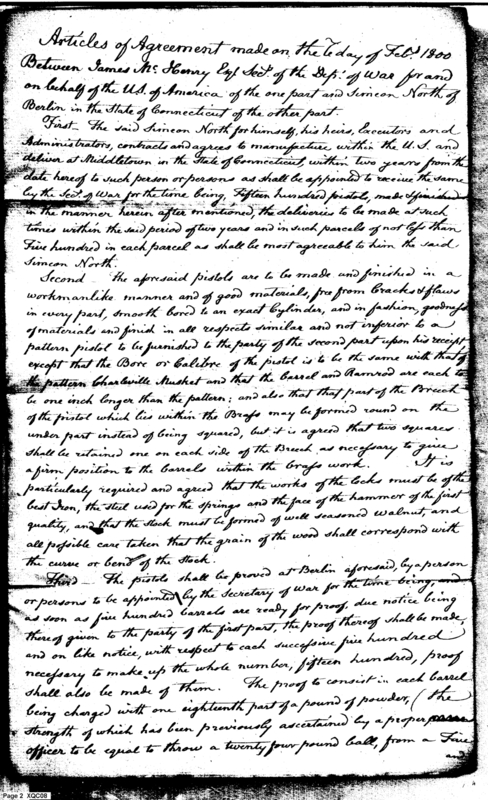 Articles of Agreement made on the 6 day of Feby. 1800
Between James Mc. Henry Esqr. Secy. of the Dept. of War for and
on behalf of the U.S. of America of the one part and Simeon North of
Berlin in the State of Connecticut of the other part.
First — The said Simeon North for himself, his heirs, Executors and
Administrators, contracts and agrees to manufacture within the U.S. and
deliver at Middletown in the State of Connecticut, within two years from the
date hereof to such person or persons as shall be appointed to receive the same
by the Secy. of War for the time being, Fifteen hundred pistols, made & finished
in the manner herein after mentioned, the deliveries to be made at such
times within the said period of two years and in such parcels of not less than
Five hundred in each parcel as shall be most agreeable to him the said
Simeon North.
Second — The aforesaid pistols are to be made and finished in a
workmanlike manner and of good materials, free from Cracks & flaws
in every part, smooth bored to an exact Cylinder, and in fashion, goodness
of materials and finish in all respects similar and not inferior to a
pattern pistol to be furnished to the party of the second part upon his receipt,
except that the Bore or Calibre of the pistol is to be the same with that of
the pattern Charleville Musket and that the barrel and Ramrod are each to
be one inch longer than the pattern; and also that that part of the Breech
of the pistol which lies within the Brass may be formed round on the
under part instead of being squared, but it is agreed that two squares
shall be retained one on each side of the Breech as necessary to give
a firm position to the barrels within the brass work. It is
particularly required and agreed that the works of the locks must be of the
best Iron, the steel used for the springs and the face of the hammer of the first
quality, and that the Stock must be formed of well seasoned walnut, and
all possible care taken that the grain of the wood shall correspond with
the curve or bend of the Stock.
Third — The pistols shall be proved at Berlin aforesaid, by a person
or persons to be appointed by the Secretary of War for the time being, and
as soon as five hundred barrels are ready for proof, due notice being
thereof given to the party of the first part, the proof thereof shall be made,
and on like notice, with respect to each successive five hundred
necessary to make up the whole number, fifteen hundred, proof
shall also be made of them. The proof to consist in each barrel
being charged with one eighteenth part of a pound of powder, (the
strength of which has been previously ascertained by a proper
officer to be equal to throw a twenty four pound ball, from a Five
Page 2 XQC08